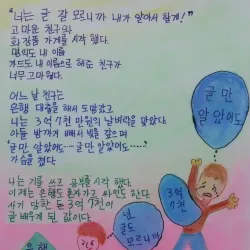 "너는 글 잘 모르니까 내가 알아서 할게!"
고마운 친구와
화장품 가게를 시작 했다.
명의도 내 이름
카드도 내 이름으로 해준 친구가
너무 고마웠다.
어느 날 친구는
은행 대출을 해서 도망갔고
나는 3억 7천 만원의 날벼락을 맞았다.
아들 방까지 빼서 빚을 갚으며
"글만 알았어도.... 글만 알았어도...."
가슴을 쳤다.
나는 가슴을 쓰고 공부를 시작 했다.
이제는 은행도 혼자가고 싸인도 한다.
사기 당한 돈 3억 7천이
글 배우게 된 값이다.
글만
알았어도...
3억
7천
넌
글도
모르니까
은행